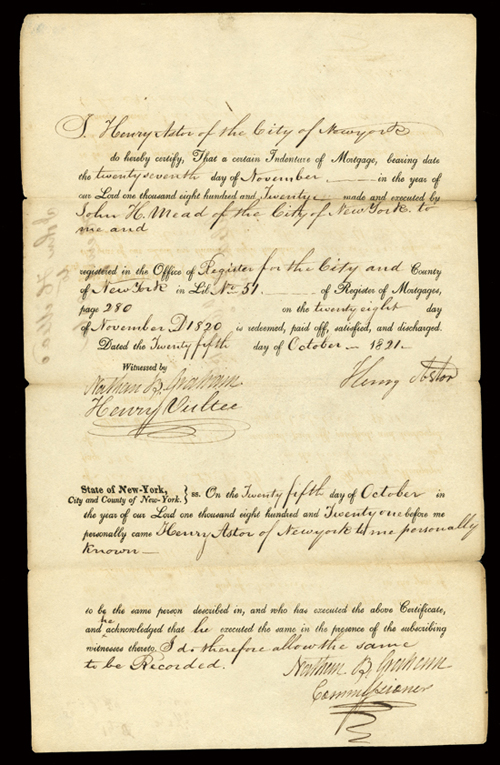 I. Henry Astor of the City of Newyork
do hereby certify, That a certain Indenture of Mortgage, bearing date
the twenty seventh day of November in the year of
our Lord one thousand eight hundred and Twenty made and executed by
John H. Mead of the City of New York. to
me and
registered in the Office of Register for the City and County
of New York in Lib No 51 of Register of Mortgages,
page 280 on the twenty eight day
of November D 1820 is redeemed, paid off, satisfied, and discharged.
Dated the Twenty fifth day of October 1821.
Witnessed by
Nathan B. Graham Henry Astor
Henry Vultee
State of New-York,
City and County of New-York. } ss. On the Twenty fifth day of October in
the year of our Lord one thousand eight hundred and Twenty one before me
personally came Henry Astor of Newyork to me personally
known
to be the same person described in, and who has executed the above Certificate,
and he acknowledged that he executed the same in the presence of the subscribing
witnesses thereto. I do therefore allow the same
to be Recorded.
Nathan B. Graham
Commissioner